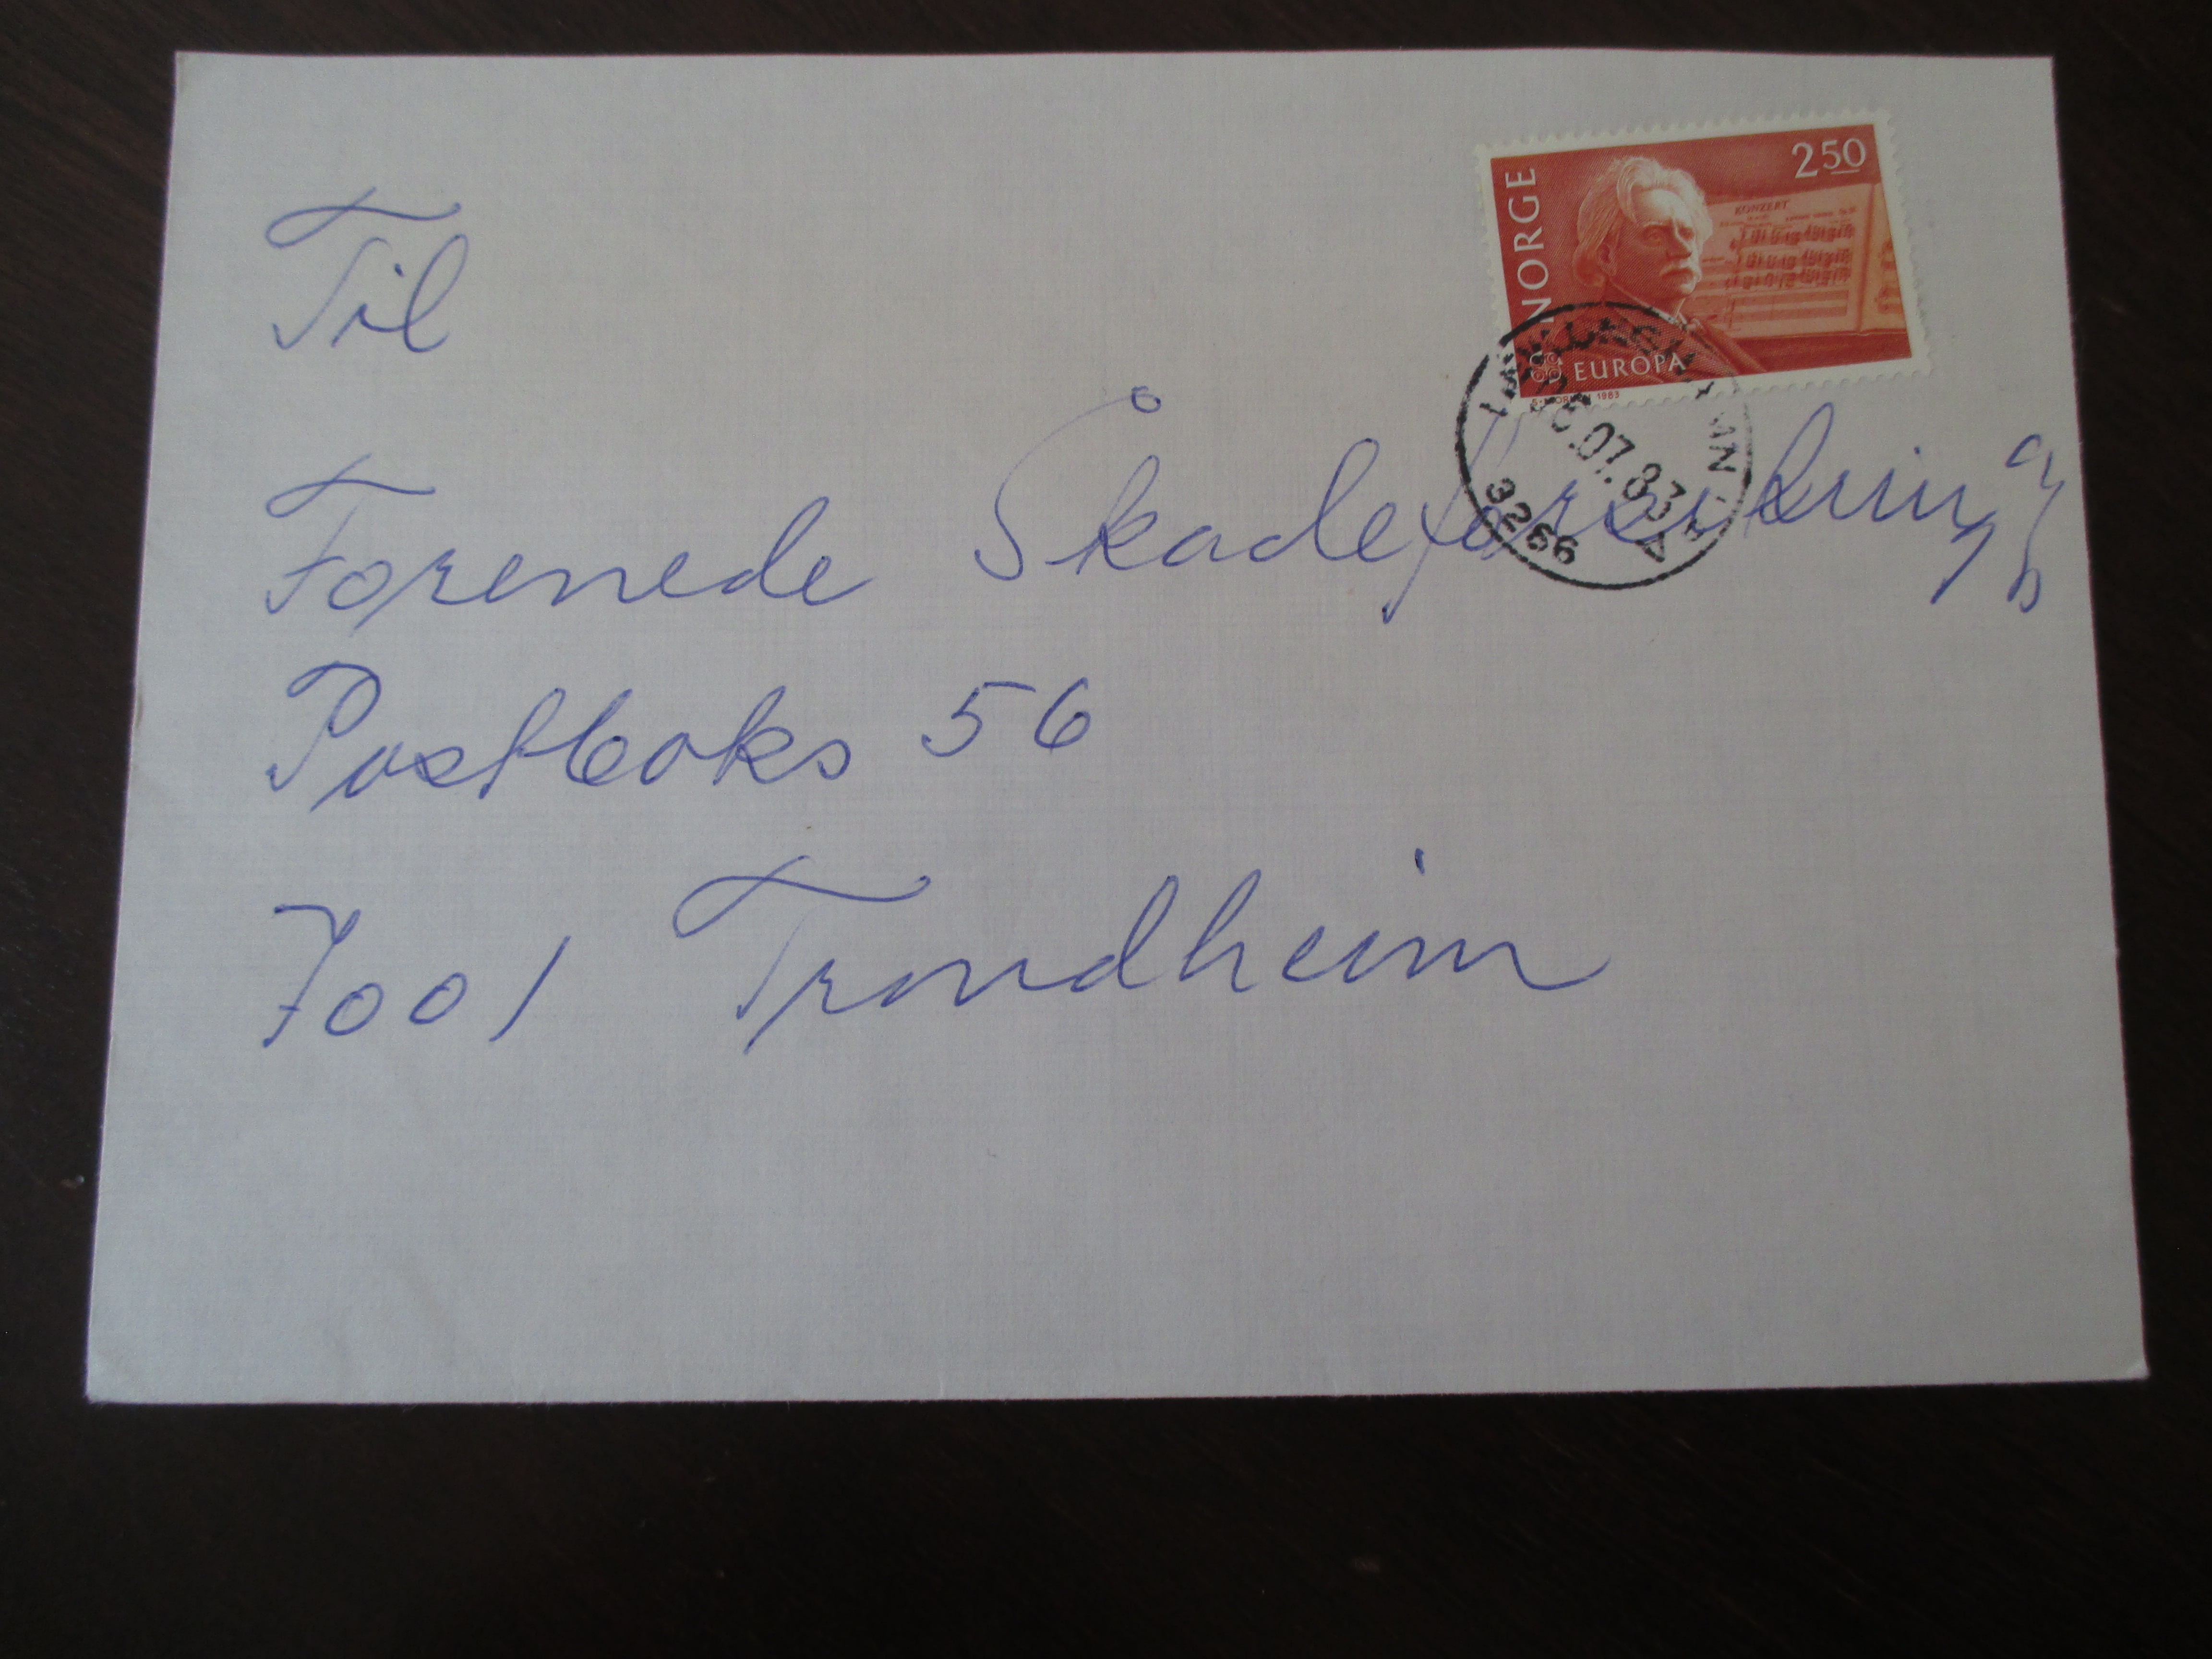 NORGE
2 50
KONZERT
EUROPA
1983
.07.83
3266
Til
Forenede Skadeforsikring
Postboks 56
7001 Trondheim